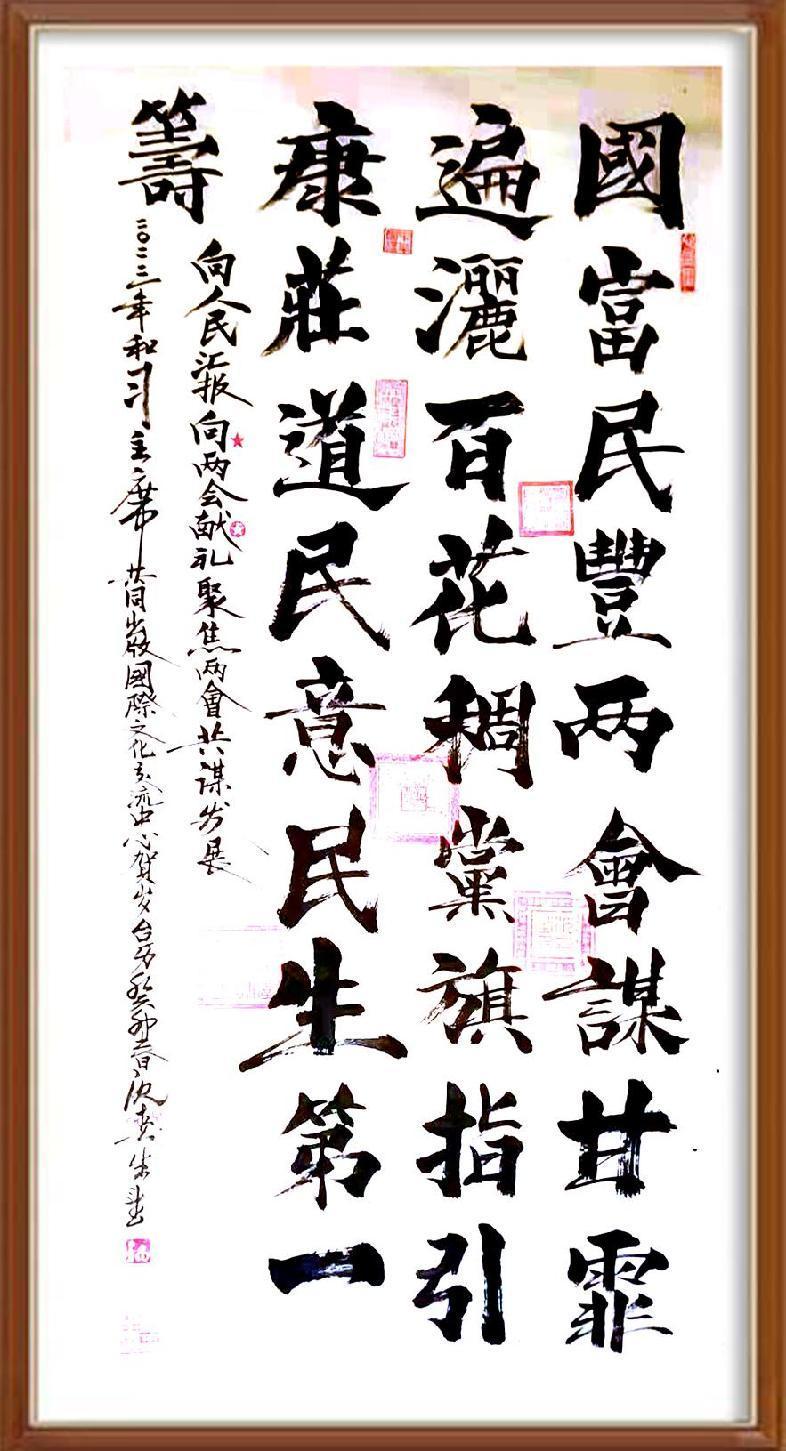 國富民豐两會謀甘霏
遍灑百花稠黨旗指引
康莊道民意民生第一
籌
向人民汇报向两会献礼聚焦两會共谋发展
二〇二三年和习主席共同出版國際文化交流中心贺岁台历癸卯春沈